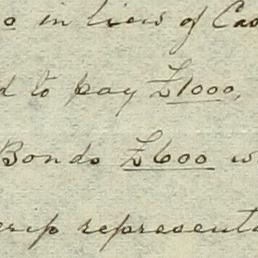 o in lieu of Cas
d to pay £1000,
Bonds £600 w
crip representa